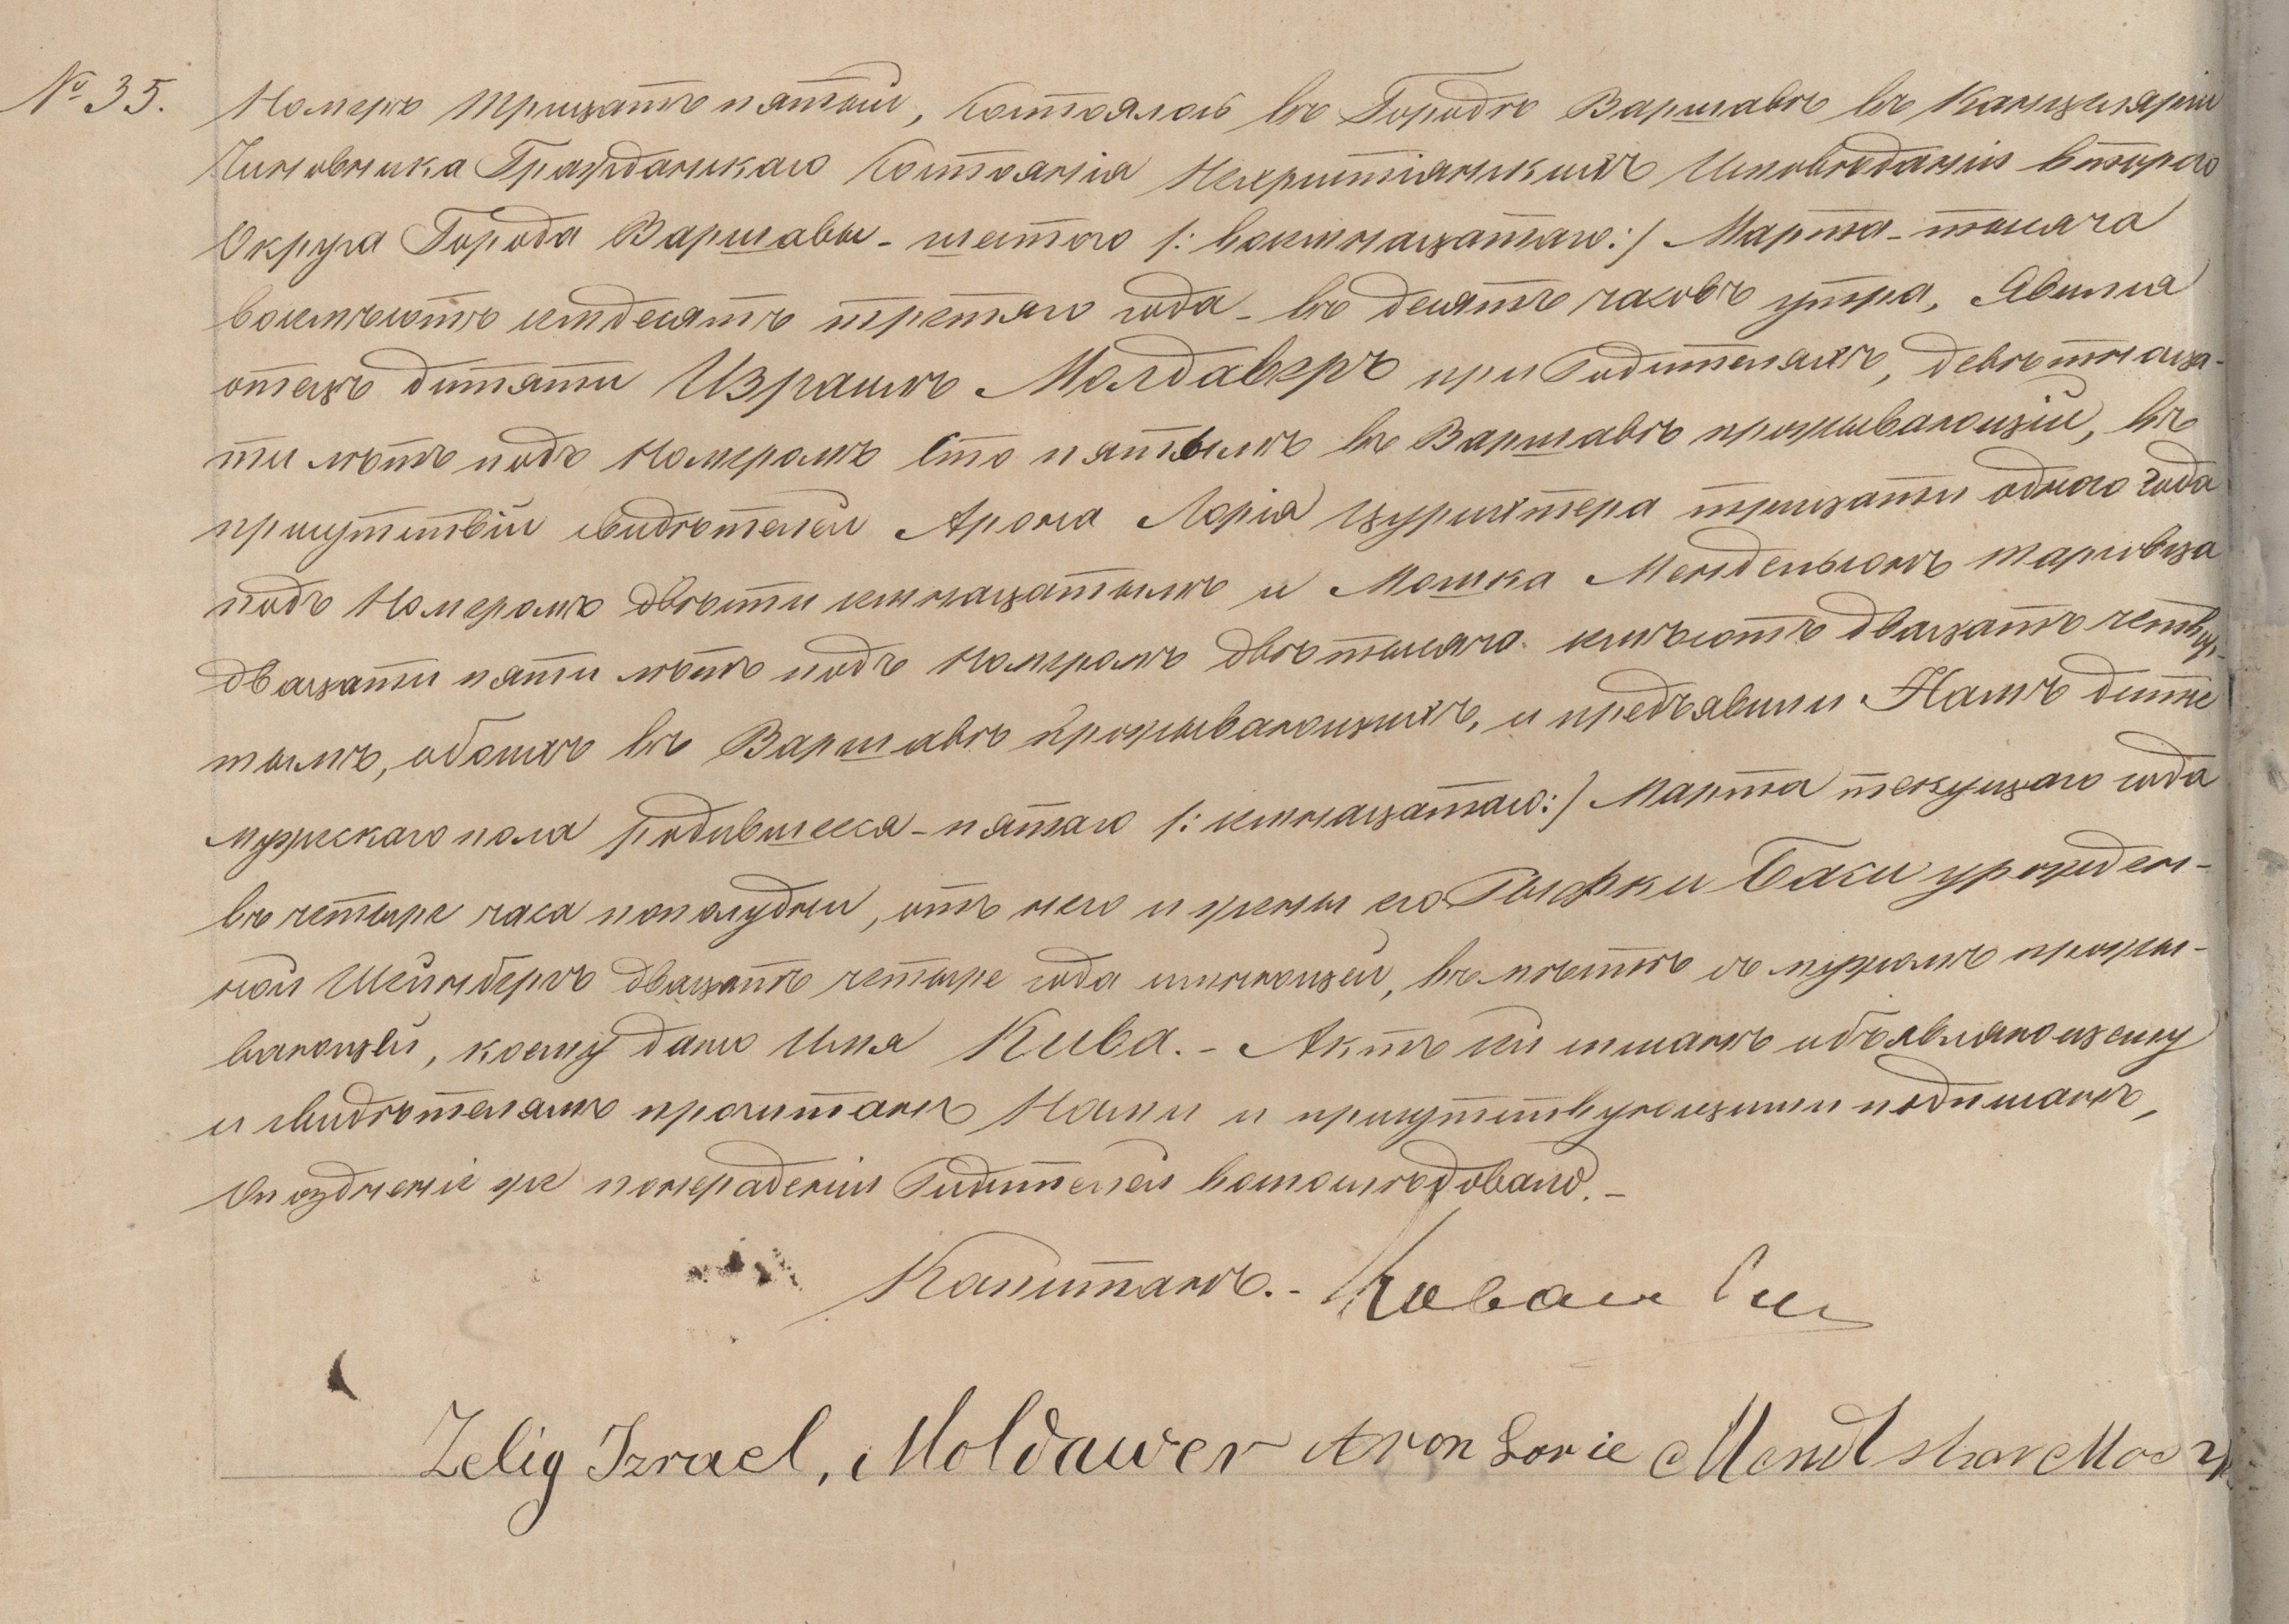 № 35. Номеръ тридцать пятый, Состоялось въ Городѣ Варшавѣ въ Канцеляріи
Чиновника Гражданскаго Состоянія Нехристіанскихъ Исповѣданій втораго
Округа Города Варшавы - шестаго /: восемнадцатаго :/ Марта - тысяча
восемьсотъ семдесятъ третьяго года - въ десять часовъ утра, Явился
отецъ дитяти Израиль Молдаверъ при Родителяхъ, девятнадца-
ти лѣтъ подъ Номеромъ Сто пятымъ въ Варшавѣ проживающій, въ
присутствіи свидѣтелей Арона Лорія цурихтера тридцати одного года
подъ Номеромъ двѣсти семнадцатымъ и Мошка Мендельсонъ тарговца
двадцати пяти лѣтъ подъ Номеромъ двѣ тысяча семьсотъ двадцать четвер-
тымъ, обоихъ въ Варшавѣ проживающихъ, и предъявили Намъ дитя
мужескаго пола родившееся - пятаго /: семнадцатаго :/ Марта текущаго года
въ четыре часа пополудни, отъ него и жены его Рыфки Баси урожден-
ной Шейнбергъ двадцать четыре года имѣющей, въ мѣстѣ съ мужемъ прожи-
вающей, коему дано Имя Кива. - Актъ сей инымъ объявляющему
и свидѣтелямъ прочитанъ Нами и присутствующими подписанъ,
Опозданіе же понерадѣнію Родителей воспослѣдовало. -
Капитанъ. -
Zelig Izrael, Moldawer Aron Lorie